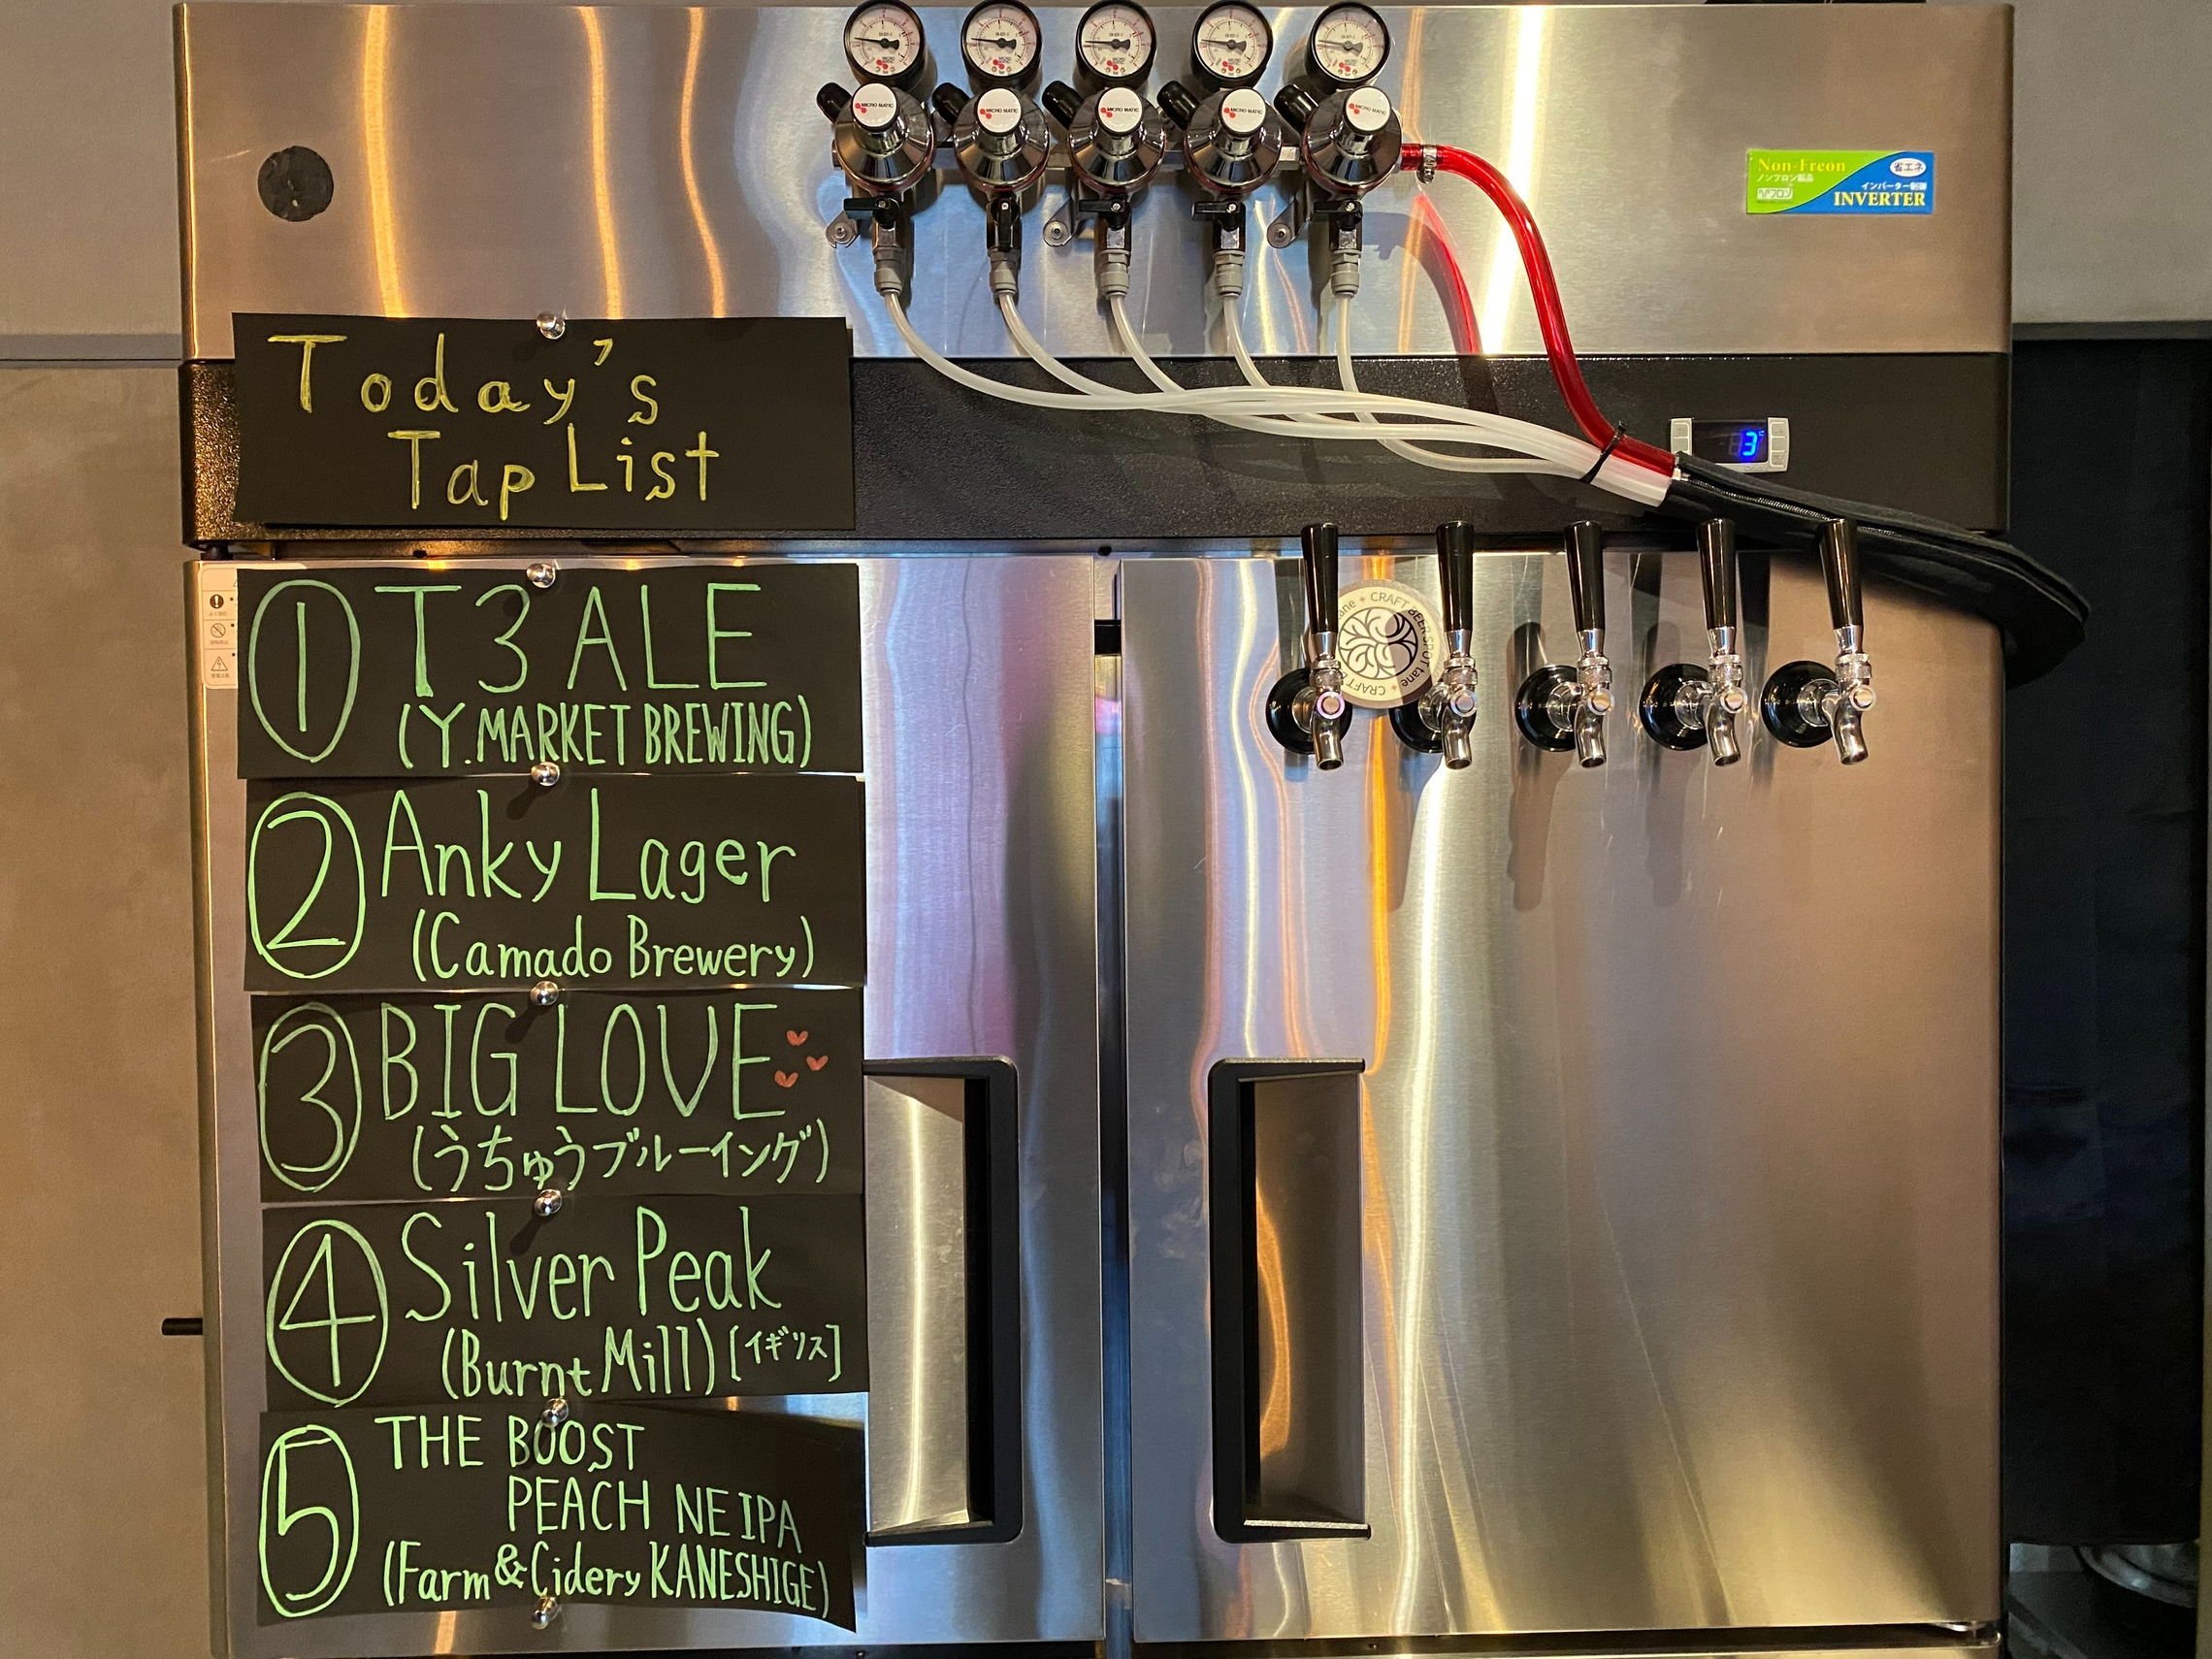 MICRO MATIC
MICRO MATIC
MICRO MATIC
MICRO MATIC
MICRO MATIC
Non-Freon
ノンフロン製品
省エネ
インバーター制御
INVERTER
3
Today's
Tap List
① T3 ALE
(Y.MARKET BREWING)
② Anky Lager
(Camado Brewery)
③ BIG LOVE
(うちゅうブルーイング)
④ Silver Peak
(Burnt Mill) [イギリス]
⑤ THE BOOST
PEACH NE IPA
(Farm & Cidery KANESHIGE)
CRAFT BEER SPOT tane